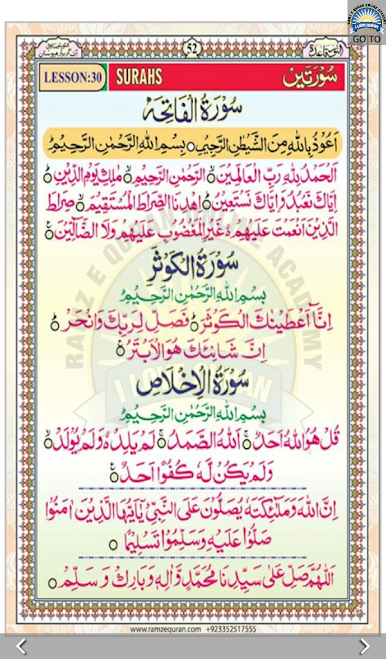 GO TO
52
LESSON:30 SURAHS سُوْرَتَیْن
سُوْرَةُ الْفَاتِحَة
اَعُوْذُ بِاللّٰهِ مِنَ الشَّیْطٰنِ الرَّجِیْمِ بِسْمِ اللّٰهِ الرَّحْمٰنِ الرَّحِیْمِ
اَلْحَمْدُ لِلّٰهِ رَبِّ الْعَالَمِیْنَ الرَّحْمٰنِ الرَّحِیْمِ مٰلِكِ یَوْمِ الدِّیْنِ
اِیَّاكَ نَعْبُدُ وَ اِیَّاكَ نَسْتَعِیْنُ اِهْدِنَا الصِّرَاطَ الْمُسْتَقِیْمَ صِرَاطَ
الَّذِیْنَ اَنْعَمْتَ عَلَیْهِمْ غَیْرِ الْمَغْضُوْبِ عَلَیْهِمْ وَلَا الضَّآلِّیْنَ
سُوْرَةُ الْكَوْثَرِ
بِسْمِ اللّٰهِ الرَّحْمٰنِ الرَّحِیْمِ
اِنَّآ اَعْطَیْنٰكَ الْكَوْثَرَ فَصَلِّ لِرَبِّكَ وَانْحَرْ
اِنَّ شَانِئَكَ هُوَ الْاَبْتَرُ
سُوْرَةُ الْاِخْلَاصِ
بِسْمِ اللّٰهِ الرَّحْمٰنِ الرَّحِیْمِ
قُلْ هُوَ اللّٰهُ اَحَدٌ اَللّٰهُ الصَّمَدُ لَمْ یَلِدْ وَلَمْ یُوْلَدْ
وَلَمْ یَكُنْ لَّهٗ كُفُوًا اَحَدٌ
اِنَّ اللّٰهَ وَمَلٰٓئِكَتَهٗ یُصَلُّوْنَ عَلَی النَّبِیِّ یٰٓاَیُّهَا الَّذِیْنَ اٰمَنُوْا
صَلُّوْا عَلَیْهِ وَسَلِّمُوْا تَسْلِیْمًا
اَللّٰهُمَّ صَلِّ عَلٰی سَیِّدِنَا مُحَمَّدٍ وَّاٰلِهٖ وَبَارِكْ وَسَلِّمْ
RAMZ E QURAN ACADEMY
I LOVE QURAN
www.ramzequran.com +923352517555